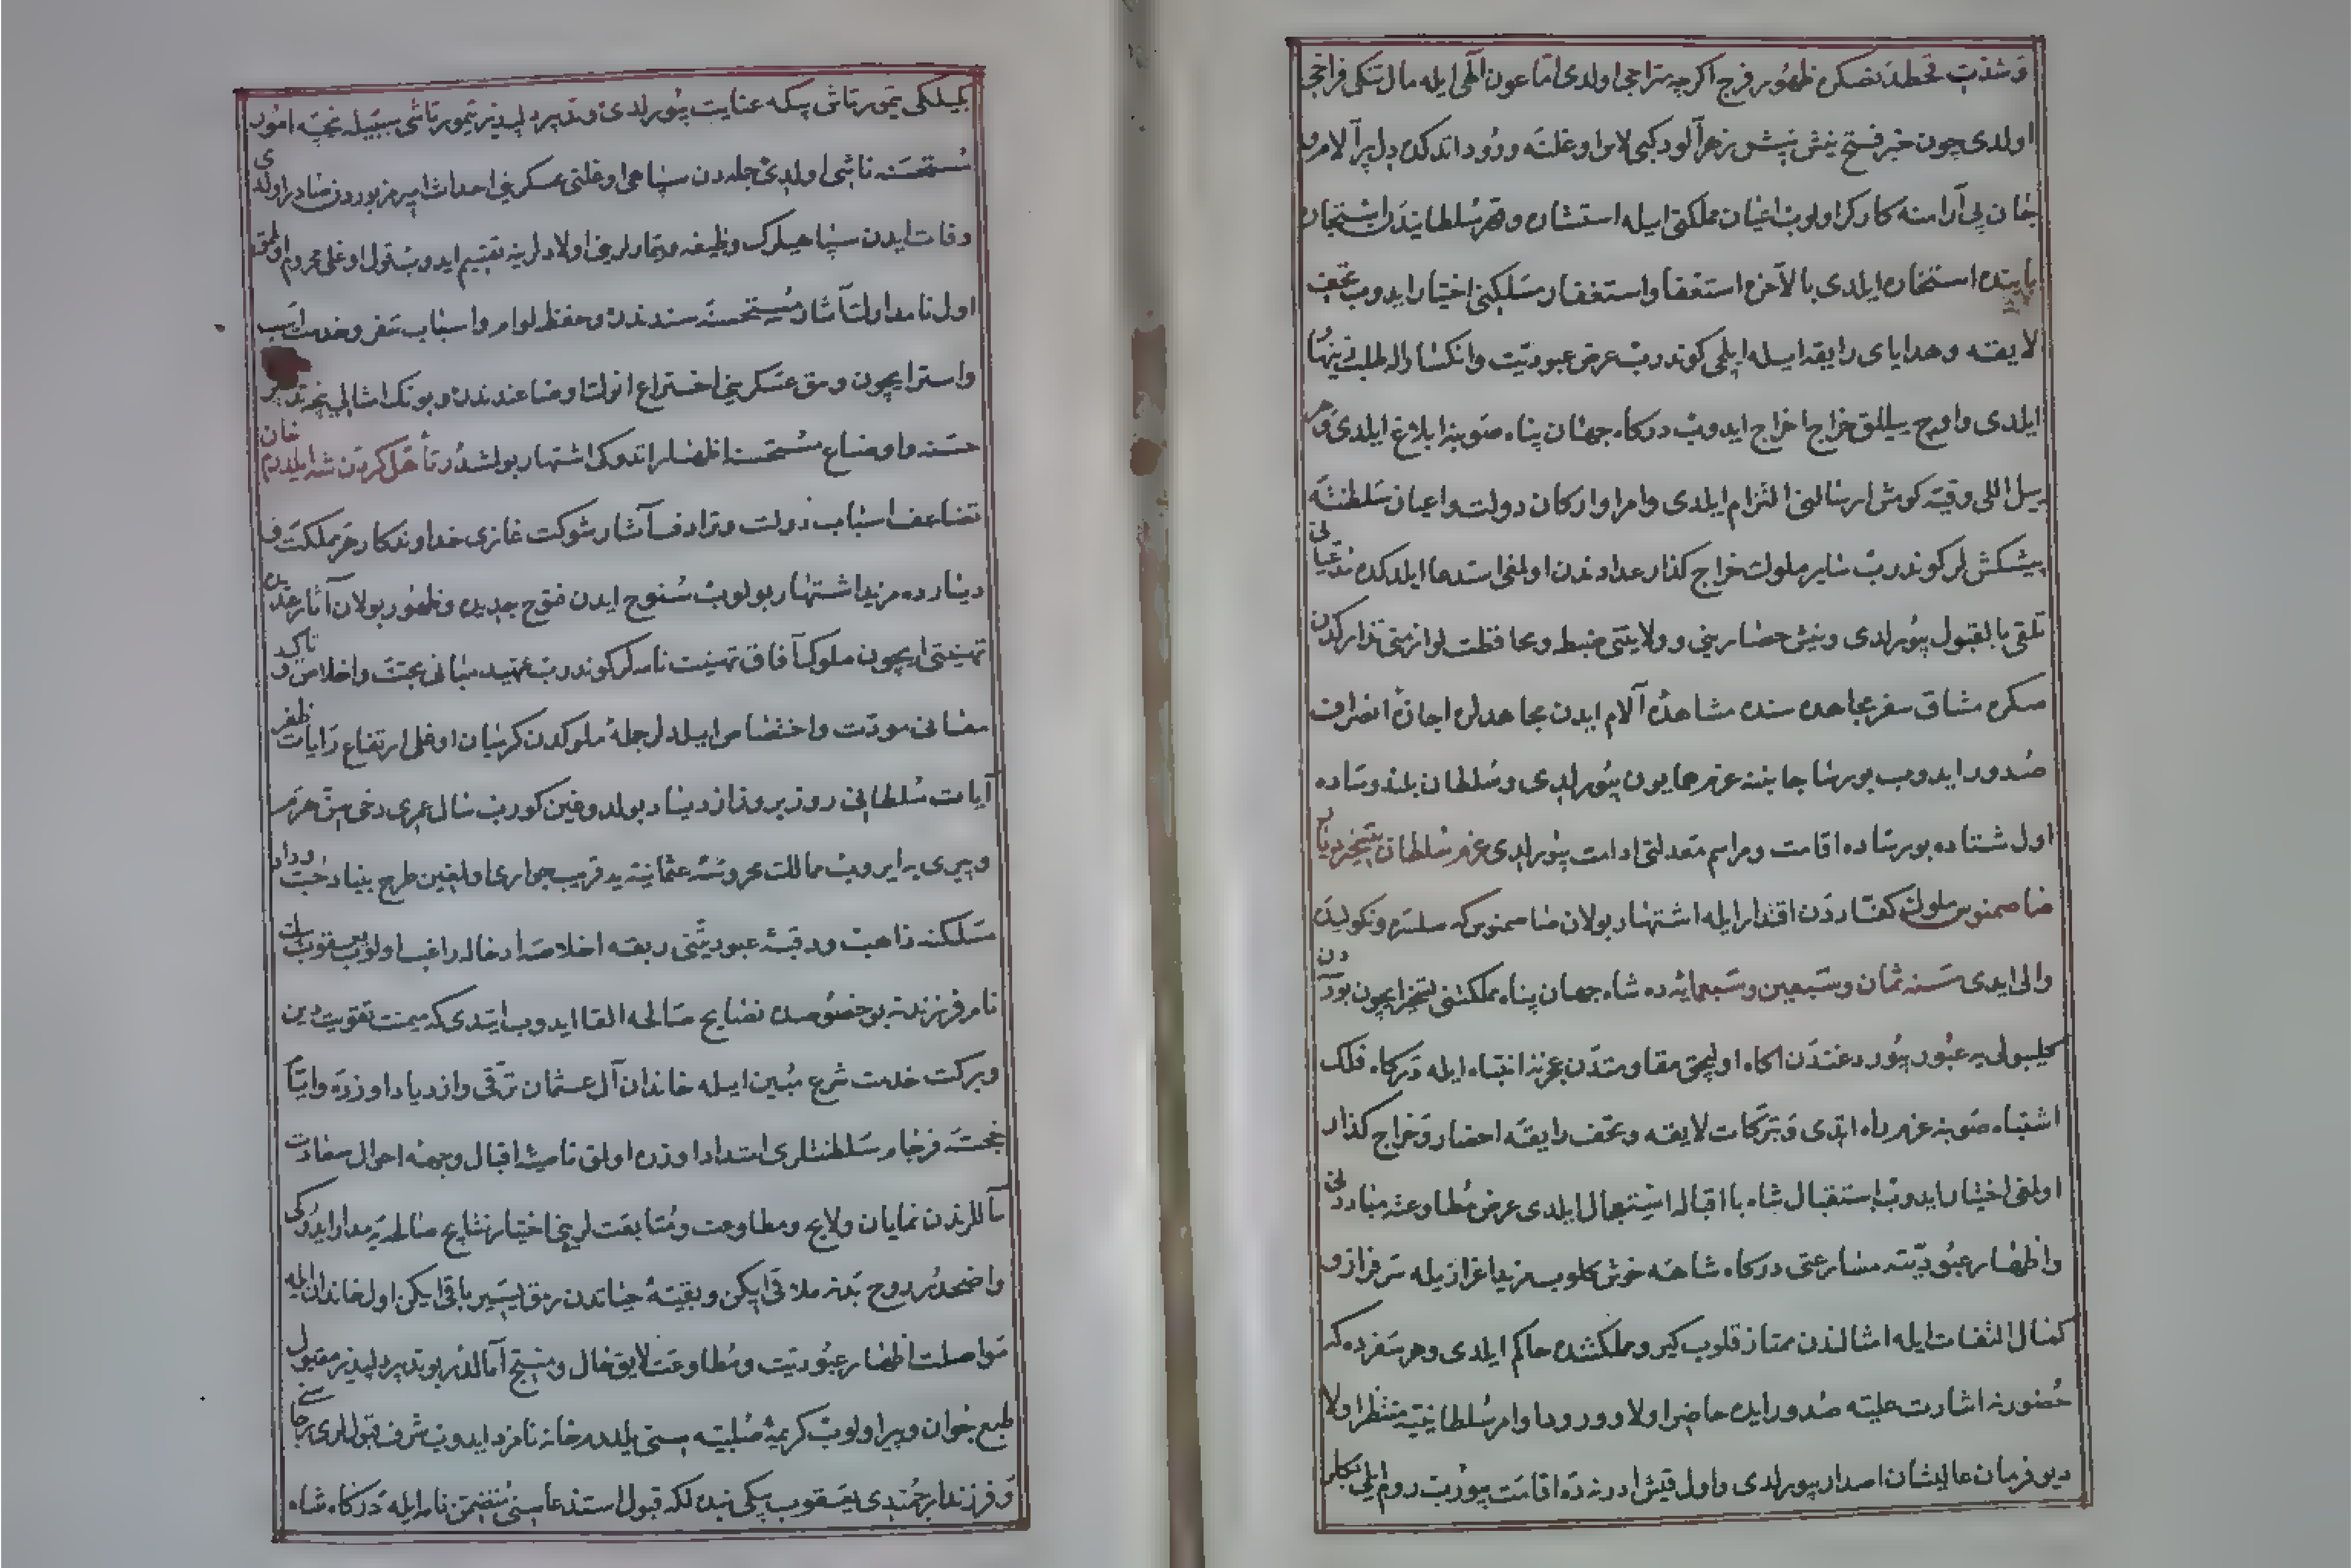 و شدت قحطدنصکره ظهور فرج اکرچه متراجی اولدی اما عون الهی ایله مال تنکی فراخی
اولدی چون خبر فتح نیش نیش زهرآلود کبی لاس اوغلنه ورود اتدکده دل پر آلامی و
جان بی آرامنه کارکر اولوب اعیان مملکتی ایله استشاره و قهر سلطانیدن استجاره
بابنده استخاره ایلدی بالآخره استعفا و استغفار مسلکنی اختیار ایدوب تحف
لایقه و هدایای رایقه ایله ایلچی کوندرب عرض عبودیت و انکسار
ایلدی و اوچ ییللق خراج اخراج ایدوب درکاه جهان پناه صوبنه ابلاغ ایلدی و هر
ییل اللی وقیه کومش ارسالنی التزام ایلدی و امرا و ارکان دولت و اعیان سلطنته
پیشکشلر کوندرب سایر ملوک خراج کذار عدادندن اولمغی استدعا ایلدکده
تلقی بالقبول بیورلدی و نیش حصارینی و ولایتنی ضبط و محافظت لوازمنی تدارکدن
صکره مشاق سفر مجاهده سنده مشاهدهٔ آلام ایدن مجاهدلره اجازهٔ انصراف
صدور ایدوب بورسا جانبنه عزم همایون بیورلدی و سلطان بلند وساده
اول شتاده بورساده اقامت و مراسم معدلتی ادامت بیورلدی عزم سلطان بتسخیر دیار
صاصمنوس ملوک کفاردن اقتدار ایله اشتهار بولان صاصمنوس که سلستره و نکولیدن
والی ایدی سنه ثمان و سبعین و سبعمایه ده شاه جهان پناه مملکتنی تسخیر ایچون بورسادن
کلیبولی یه عبور بیوردغندن اکاه اولیجق مقاومتدن عجزنه انتباه ایله درکاه فلک
اشتباه صوبنه عزم راه اتدی و تبرکات لایقه و تحف رایقه احضار و خراج کذار
اولمغی اختیار ایدوب استقبال شاه با اقباله استعجال ایلدی عرض مطاوعته مبادرتی
و اظهار عبودیته مسارعتی درکاه شاهه خوش کلوب مزید اعزازیله سرفراز و
کمال التفات ایله امثالندن ممتاز قلوب کیرو مملکتنده حاکم ایلدی و هر سفرده که
حضورنه اشارت علیه صدور ایده حاضر اولا و ورود اوامر سلطانیه یه منتظر اولا
دیو فرمان عالیشان اصدار بیورلدی و اول قیش ادرنه ده اقامت بیورب روم ایلی بکلر
بکیلکی تیمورتاش بیکه عنایت بیورلدی و تدبیر دلپذیر تیمورتاشی سببیله نیجه امور
مستحسنه ناشی اولدی جمله دن سپاهی اوغلنی عسکرینی احداث امیر مزبوردن صادر اولدی
وفات ایدن سپاهیلرک وظیفه و تیمارلرینی اولادلرینه تقسیم ایدوب قول اوغلی محروم اولمق
اول نامدارک آثار مستحسنه سندندر و حفظ لوازم و اسباب سفر و خدمت اسب
و استر ایچون وینق عسکرینی اختراع انک اوضاعندندر و بونک امثالی نیجه تدبیر
حسنه و اوضاع مستحسنه اظهار اتدوکی اشتهار بولمشدر تأهل کردن شه ایلدرم خان
تضاعف اسباب دولت و ترادف آثار شوکت غازی خداوندکار هر مملکت و
دیارده مزید اشتهار بولوب سنوح ایدن فتوح جدیده و ظهور بولان آثار عدیده
تهنیتی ایچون ملوک آفاق تهنیت نامه لر کوندرب تمهید مبانی محبت و اخلاص و تأکید
معانی مودت و اختصاص ایلدیلر جمله ملوکدن کرمیان اوغلی ارتفاع رایات ظفر
آیات سلطانی روز بروز ازدیاد بولدوغین کورب سال عمری دخی سن هرم
و پیری یه ایروب ممالک محروسهٔ عثمانیه یه قریب جوار اولمغین طرح بنیاد محبت و وداد
مسلکنه ذاهب و رقبهٔ عبودیتنی ربقه اخلاصه ادخاله راغب اولوب یعقوب بک
نام فرزندنه بو خصوصده نصایح صالحه القا ایدوب ایتدی که میمنت تقویت دین
و برکت خدمت شرع مبین ایله خاندان آل عثمان ترقی و ازدیاد اوزره و ایام
خجسته فرجام سلطنتلری امتداد اوزره اولمق ناصیهٔ اقبال و جبههٔ احوال سعادت
مآللرندن نمایان و لایح و مطاوعت و متابعت لرینی اختیار نتایج صالحه یه مدار ایدوکی
واضحدر روح بدنه ملاقی ایکن و بقیهٔ حیاتدن رمق یسیر باقی ایکن اول خاندان ایله
مواصلت اظهار عبودیت و مطاوعت لایق حال و منتج آمالدر بو تدبیر دلپذیر مقبول
طبع جوان و پیر اولوب کریمهٔ صلبیه سنی یلدرم خانه نامزد ایدوب شرف قبوللری رجاسنی
و فرزند ارجمندی یعقوب بیکی بنده لکه قبول استدعاسنی متضمن نامه ایله درکاه شاه